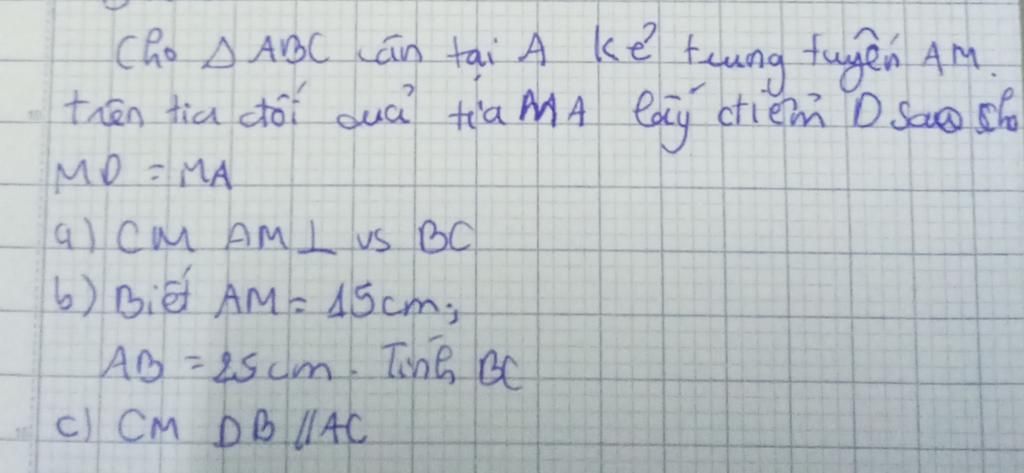 Cho Δ ABC cân tại A kẻ trung tuyến AM.
trên tia đối quả tia MA lấy điểm D sao sho
MD = MA
a) CM AM ⊥ vs BC
b) Biết AM = 15cm;
AB = 25cm. Tính BC
c) CM DB // AC